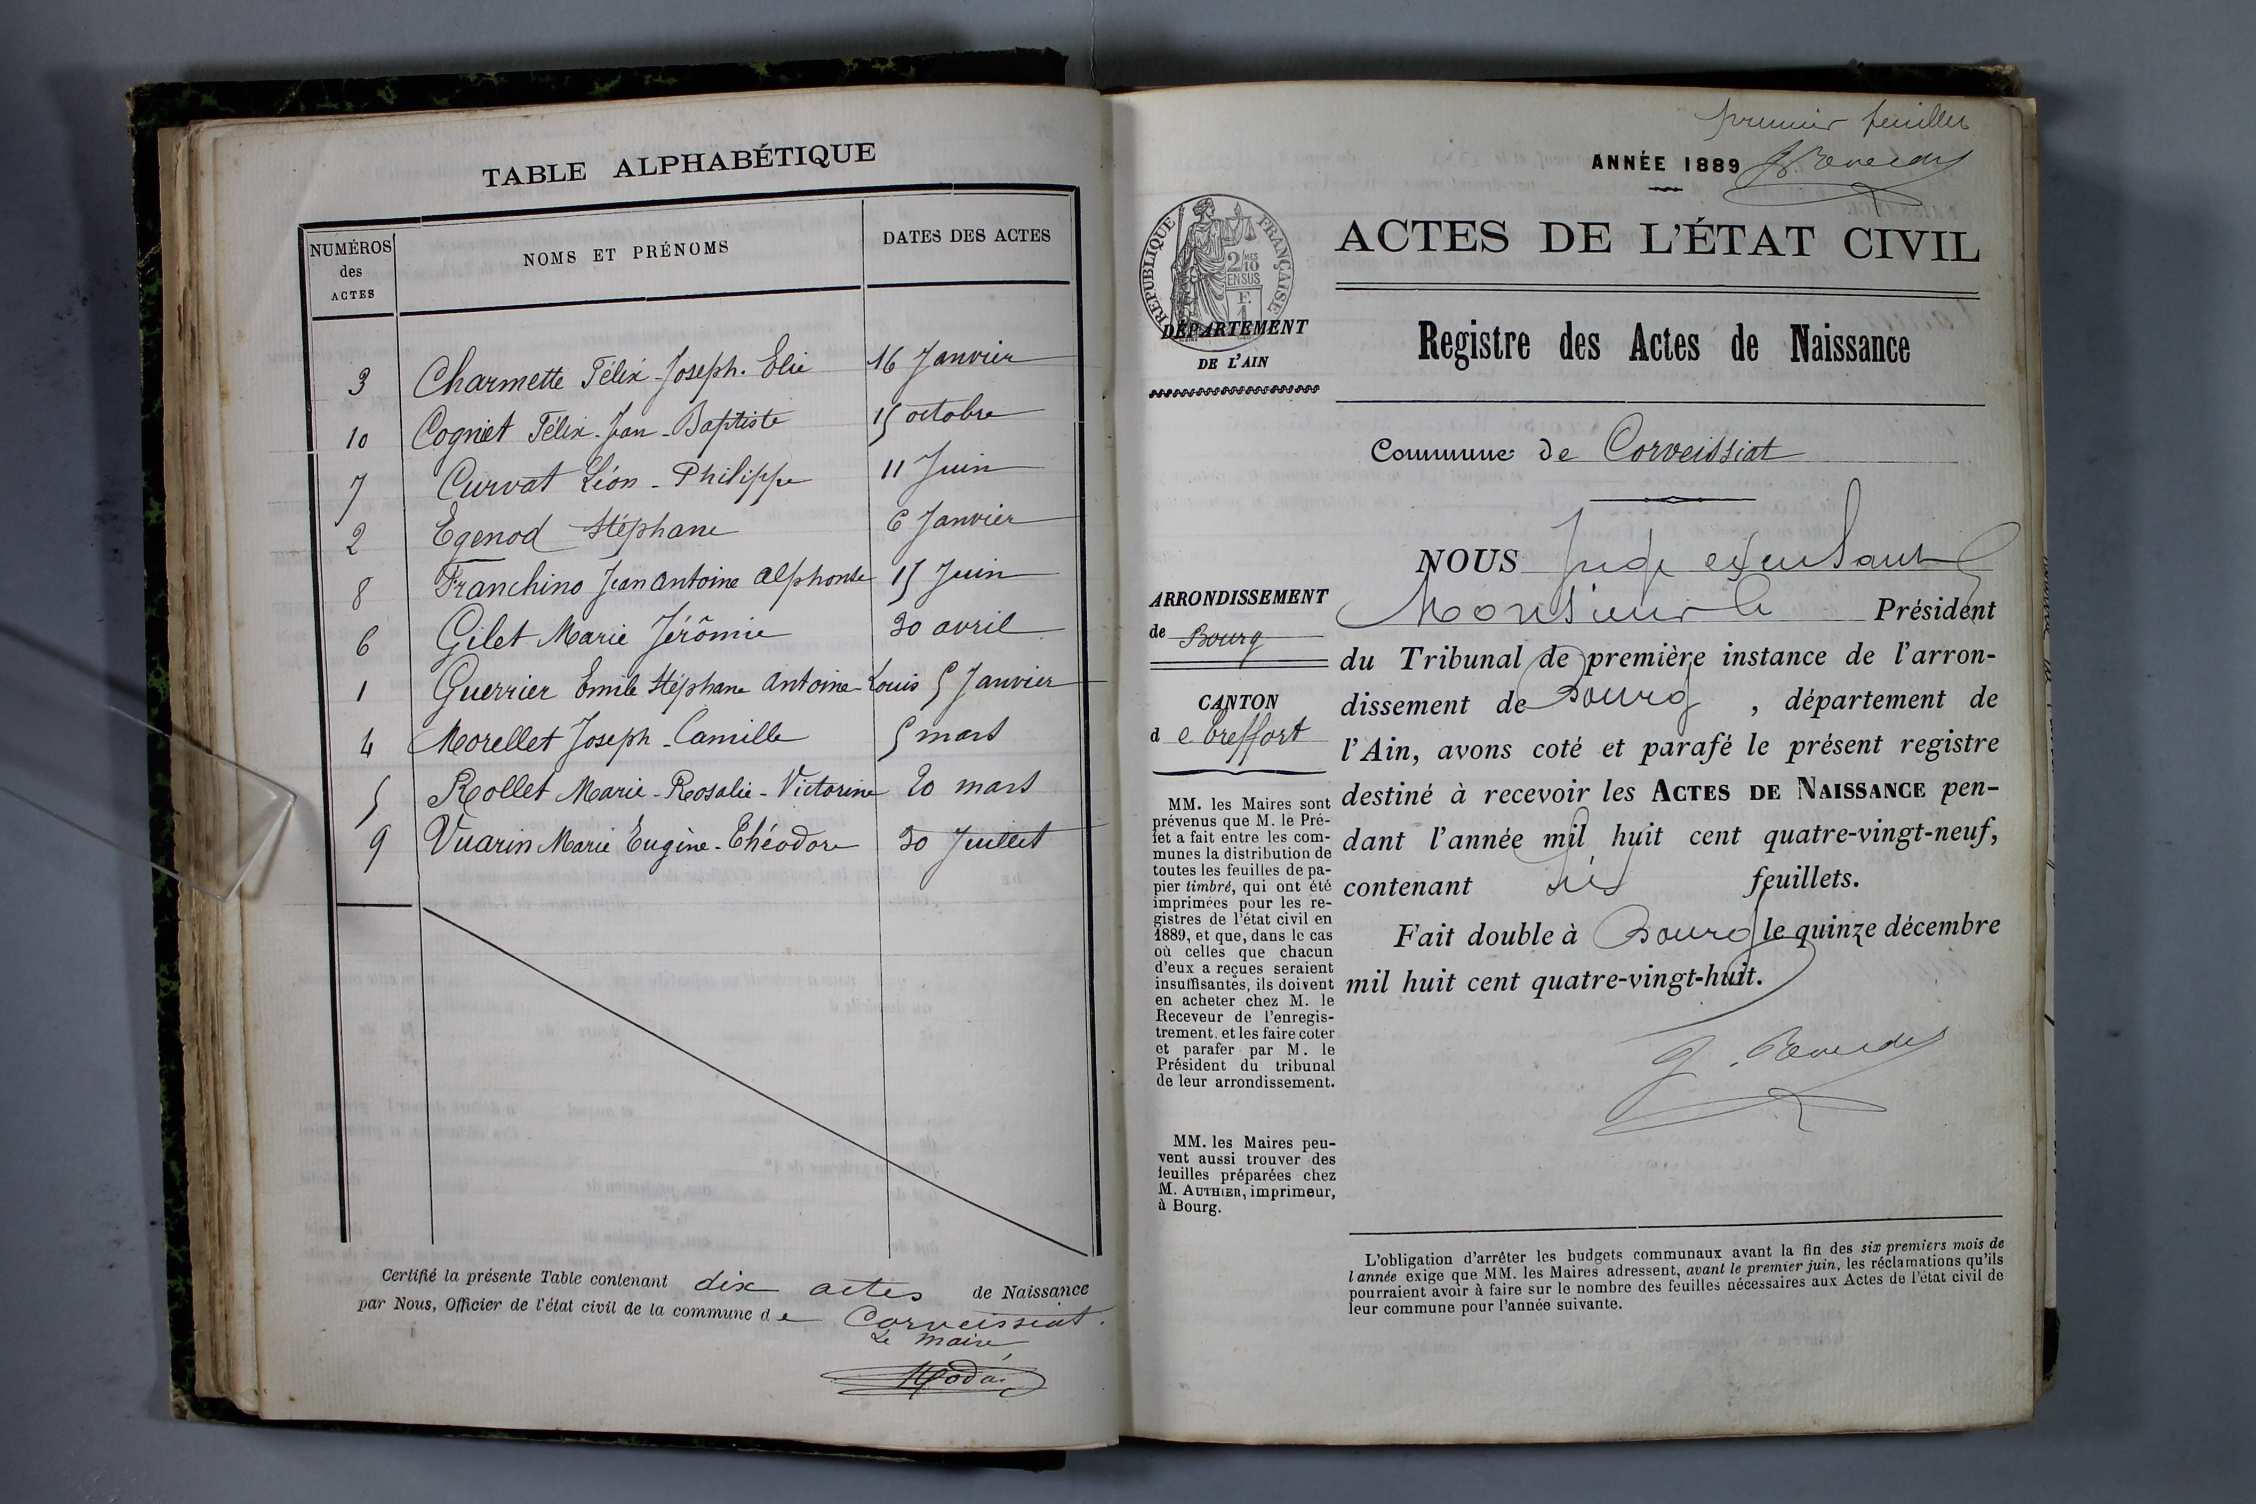 TABLE ALPHABÉTIQUE
NUMÉROS des ACTES NOMS ET PRÉNOMS DATES DES ACTES
3 Charmette Félix-Joseph-Elie 16 Janvier
10 Cogniet Félix-Jean-Baptiste 15 octobre
7 Curvat Léon-Philippe 11 Juin
2 Egenod Stéphane 6 Janvier
8 Franchino Jean Antoine Alphonse 15 Juin
6 Gilet Marie Jérômie 30 avril
1 Guerrier Emile Stéphane Antoine Louis 5 Janvier
4 Morellet Joseph-Camille 5 mars
5 Rollet Marie-Rosalie-Victorine 20 mars
9 Vuarin Marie Eugène-Théodore 30 Juillet
Certifié la présente Table contenant dix actes de Naissance
par Nous, Officier de l'état civil de la commune de Corveissiat.
Le maire,
premier feuillet
ANNÉE 1889
RÉPUBLIQUE FRANÇAISE
2/10 MES EN SUS
F. 1
DÉPARTEMENT
DE L'AIN
ACTES DE L'ÉTAT CIVIL
Registre des Actes de Naissance
Commune de Corveissiat
ARRONDISSEMENT
de Bourg
CANTON
de Treffort
MM. les Maires sont
prévenus que M. le Pré-
fet a fait entre les com-
munes la distribution de
toutes les feuilles de pa-
pier timbré, qui ont été
imprimées pour les re-
gistres de l'état civil en
1889, et que, dans le cas
où celles que chacun
d'eux a reçues seraient
insuffisantes, ils doivent
en acheter chez M. le
Receveur de l'enregis-
trement, et les faire coter
et parafer par M. le
Président du tribunal
de leur arrondissement.
MM. les Maires peu-
vent aussi trouver des
feuilles préparées chez
M. AUTHIER, imprimeur,
à Bourg.
NOUS Juge
Monsieur le Président
du Tribunal de première instance de l'arron-
dissement de Bourg, département de
l'Ain, avons coté et parafé le présent registre
destiné à recevoir les ACTES DE NAISSANCE pen-
dant l'année mil huit cent quatre-vingt-neuf,
contenant feuillets.
Fait double à Bourg le quinze décembre
mil huit cent quatre-vingt-huit.
L'obligation d'arrêter les budgets communaux avant la fin des six premiers mois de
l'année exige que MM. les Maires adressent, avant le premier juin, les réclamations qu'ils
pourraient avoir à faire sur le nombre des feuilles nécessaires aux Actes de l'état civil de
leur commune pour l'année suivante.